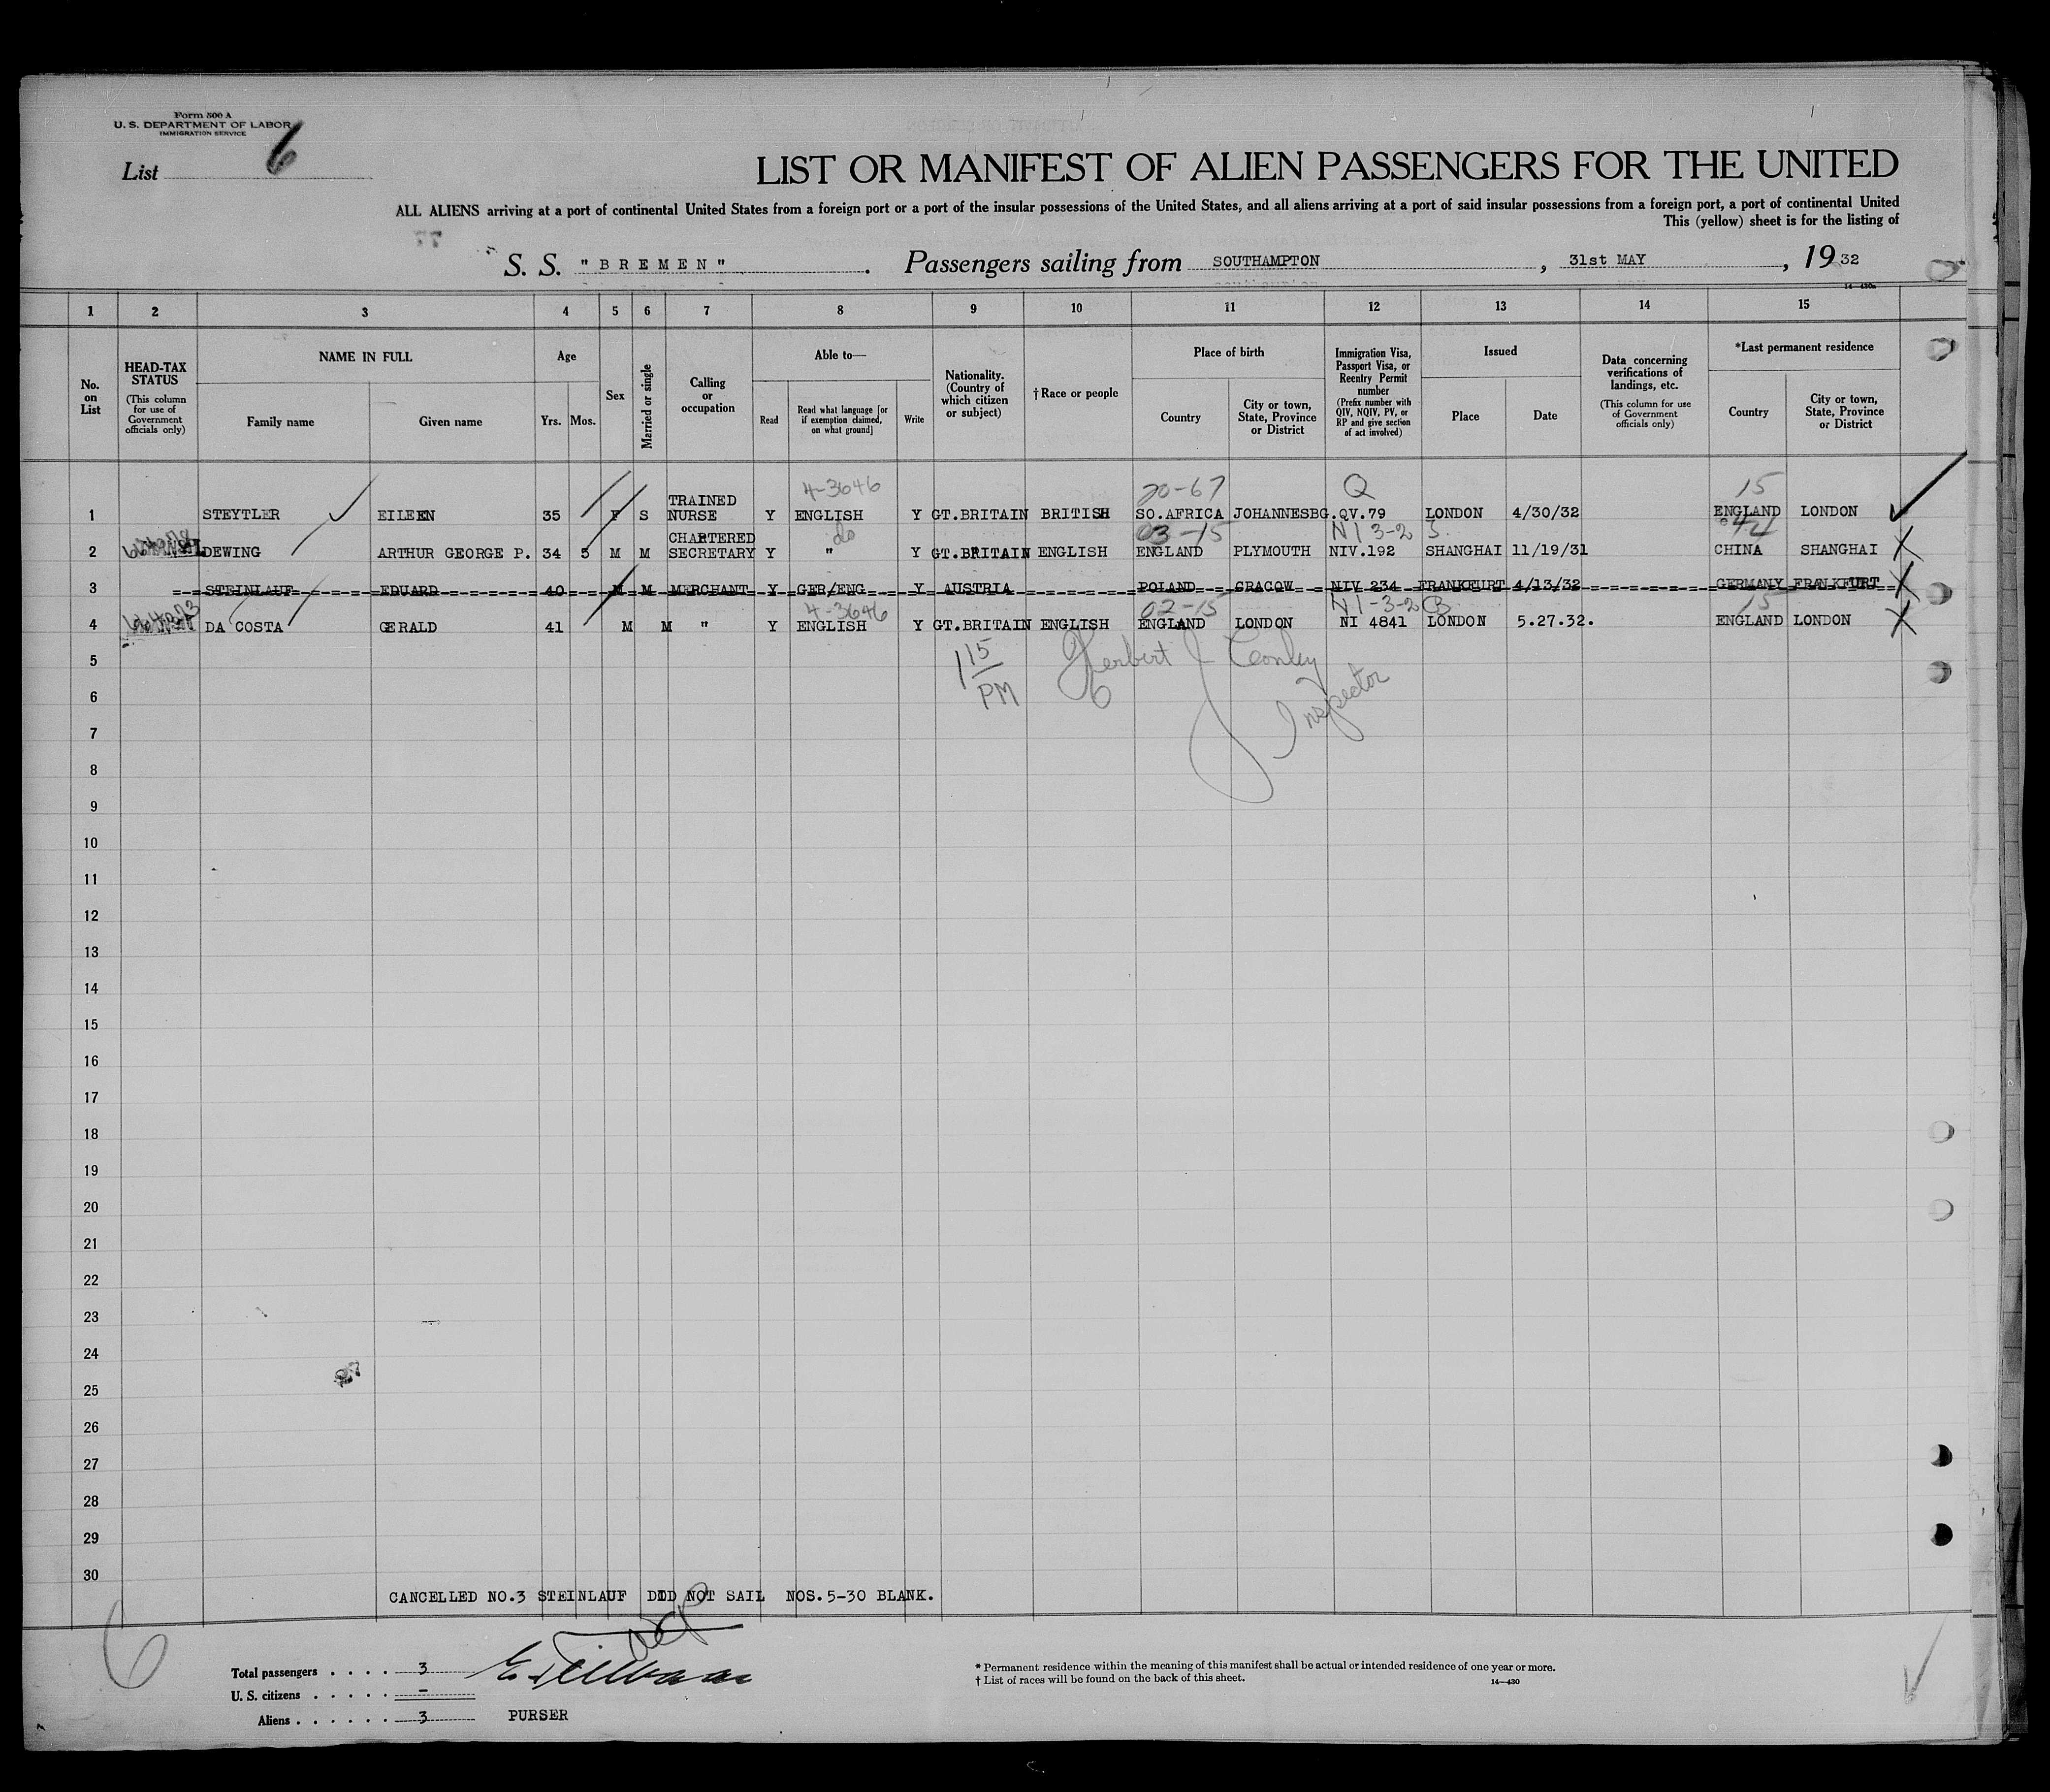 Form 500 A
U. S. DEPARTMENT OF LABOR
IMMIGRATION SERVICE
List 6
LIST OR MANIFEST OF ALIEN PASSENGERS FOR THE UNITED
ALL ALIENS arriving at a port of continental United States from a foreign port or a port of the insular possessions of the United States, and all aliens arriving at a port of said insular possessions from a foreign port, a port of continental United
This (yellow) sheet is for the listing of
S. S. "BREMEN". Passengers sailing from SOUTHAMPTON, 31st MAY, 1932
14-430a
1 2 3 4 5 6 7 8 9 10 11 12 13 14 15
No. on List
HEAD-TAX STATUS
(This column for use of Government officials only)
NAME IN FULL
Family name
Given name
Age
Yrs. Mos.
Sex
Married or single
Calling or occupation
Able to—
Read
Read what language [or if exemption claimed, on what ground]
Write
Nationality. (Country of which citizen or subject)
† Race or people
Place of birth
Country
City or town, State, Province or District
Immigration Visa, Passport Visa, or Reentry Permit number
(Prefix number with QIV, NQIV, PV, or RP and give section of act involved)
Issued
Place
Date
Data concerning verifications of landings, etc.
(This column for use of Government officials only)
*Last permanent residence
Country
City or town, State, Province or District
4-3646 20-67 Q 15
1 STEYTLER EILEEN 35 F S TRAINED NURSE Y ENGLISH Y GT.BRITAIN BRITISH SO.AFRICA JOHANNESBG. QV.79 LONDON 4/30/32 ENGLAND LONDON
do 03-15 NI 3-2
2 DEWING ARTHUR GEORGE P. 34 5 M M CHARTERED SECRETARY Y " Y GT.BRITAIN ENGLISH ENGLAND PLYMOUTH NIV.192 SHANGHAI 11/19/31 CHINA SHANGHAI
3 STEINLAUF EDUARD 40 M M MERCHANT Y GER/ENG Y AUSTRIA POLAND CRACOW NIV 234 FRANKFURT 4/13/32 GERMANY FRANKFURT
4-3646 02-15 NI-3-2 B 15
4 DA COSTA GERALD 41 M M " Y ENGLISH Y GT.BRITAIN ENGLISH ENGLAND LONDON NI 4841 LONDON 5.27.32. ENGLAND LONDON
5
115 PM Herbert J Conley
6
Inspector
7
8
9
10
11
12
13
14
15
16
17
18
19
20
21
22
23
24
25
26
27
28
29
30
CANCELLED NO.3 STEINLAUF DID NOT SAIL NOS.5-30 BLANK.
6
Total passengers . . . . 3
U. S. citizens . . . . . –
Aliens . . . . . . 3
PURSER
* Permanent residence within the meaning of this manifest shall be actual or intended residence of one year or more.
† List of races will be found on the back of this sheet.
14—430